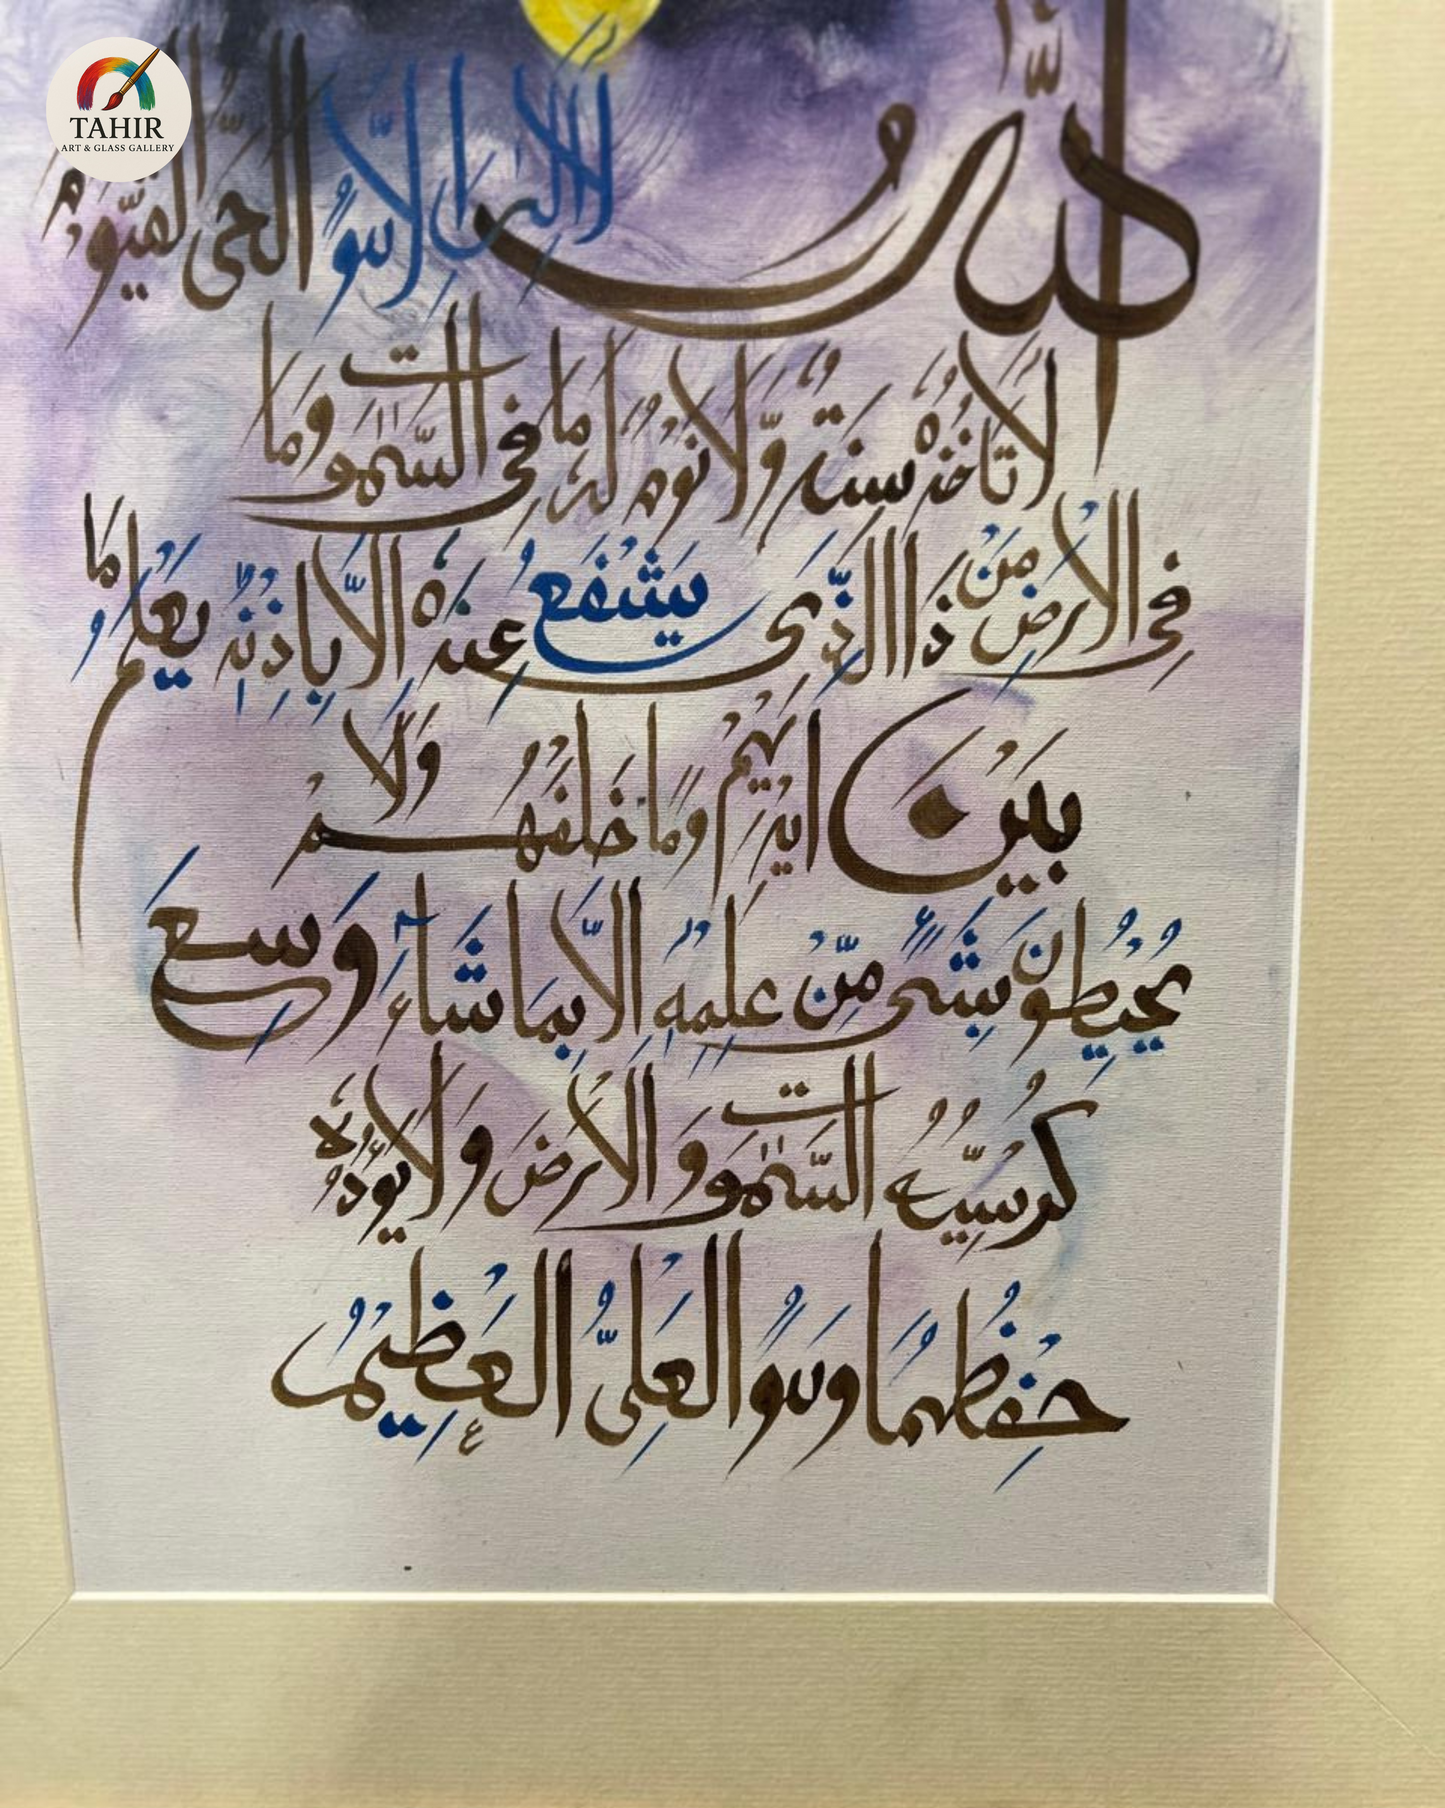 TAHIR
ART & GLASS GALLERY
اَللّٰهُ لَاۤ اِلٰهَ اِلَّا هُوَ الْحَیُّ الْقَیُّوْمُ
لَا تَاْخُذُهٗ سِنَةٌ وَّلَا نَوْمٌ لَهٗ مَا فِی السَّمٰوٰتِ وَمَا
فِی الْاَرْضِ مَنْ ذَا الَّذِیْ یَشْفَعُ عِنْدَهٗ اِلَّا بِاِذْنِهٖ یَعْلَمُ مَا
بَیْنَ اَیْدِیْهِمْ وَمَا خَلْفَهُمْ وَلَا
یُحِیْطُوْنَ بِشَیْءٍ مِّنْ عِلْمِهٖۤ اِلَّا بِمَا شَآءَ وَسِعَ
كُرْسِیُّهُ السَّمٰوٰتِ وَالْاَرْضَ وَلَا یَـُٔوْدُهٗ
حِفْظُهُمَا وَهُوَ الْعَلِیُّ الْعَظِیْمُ
ع